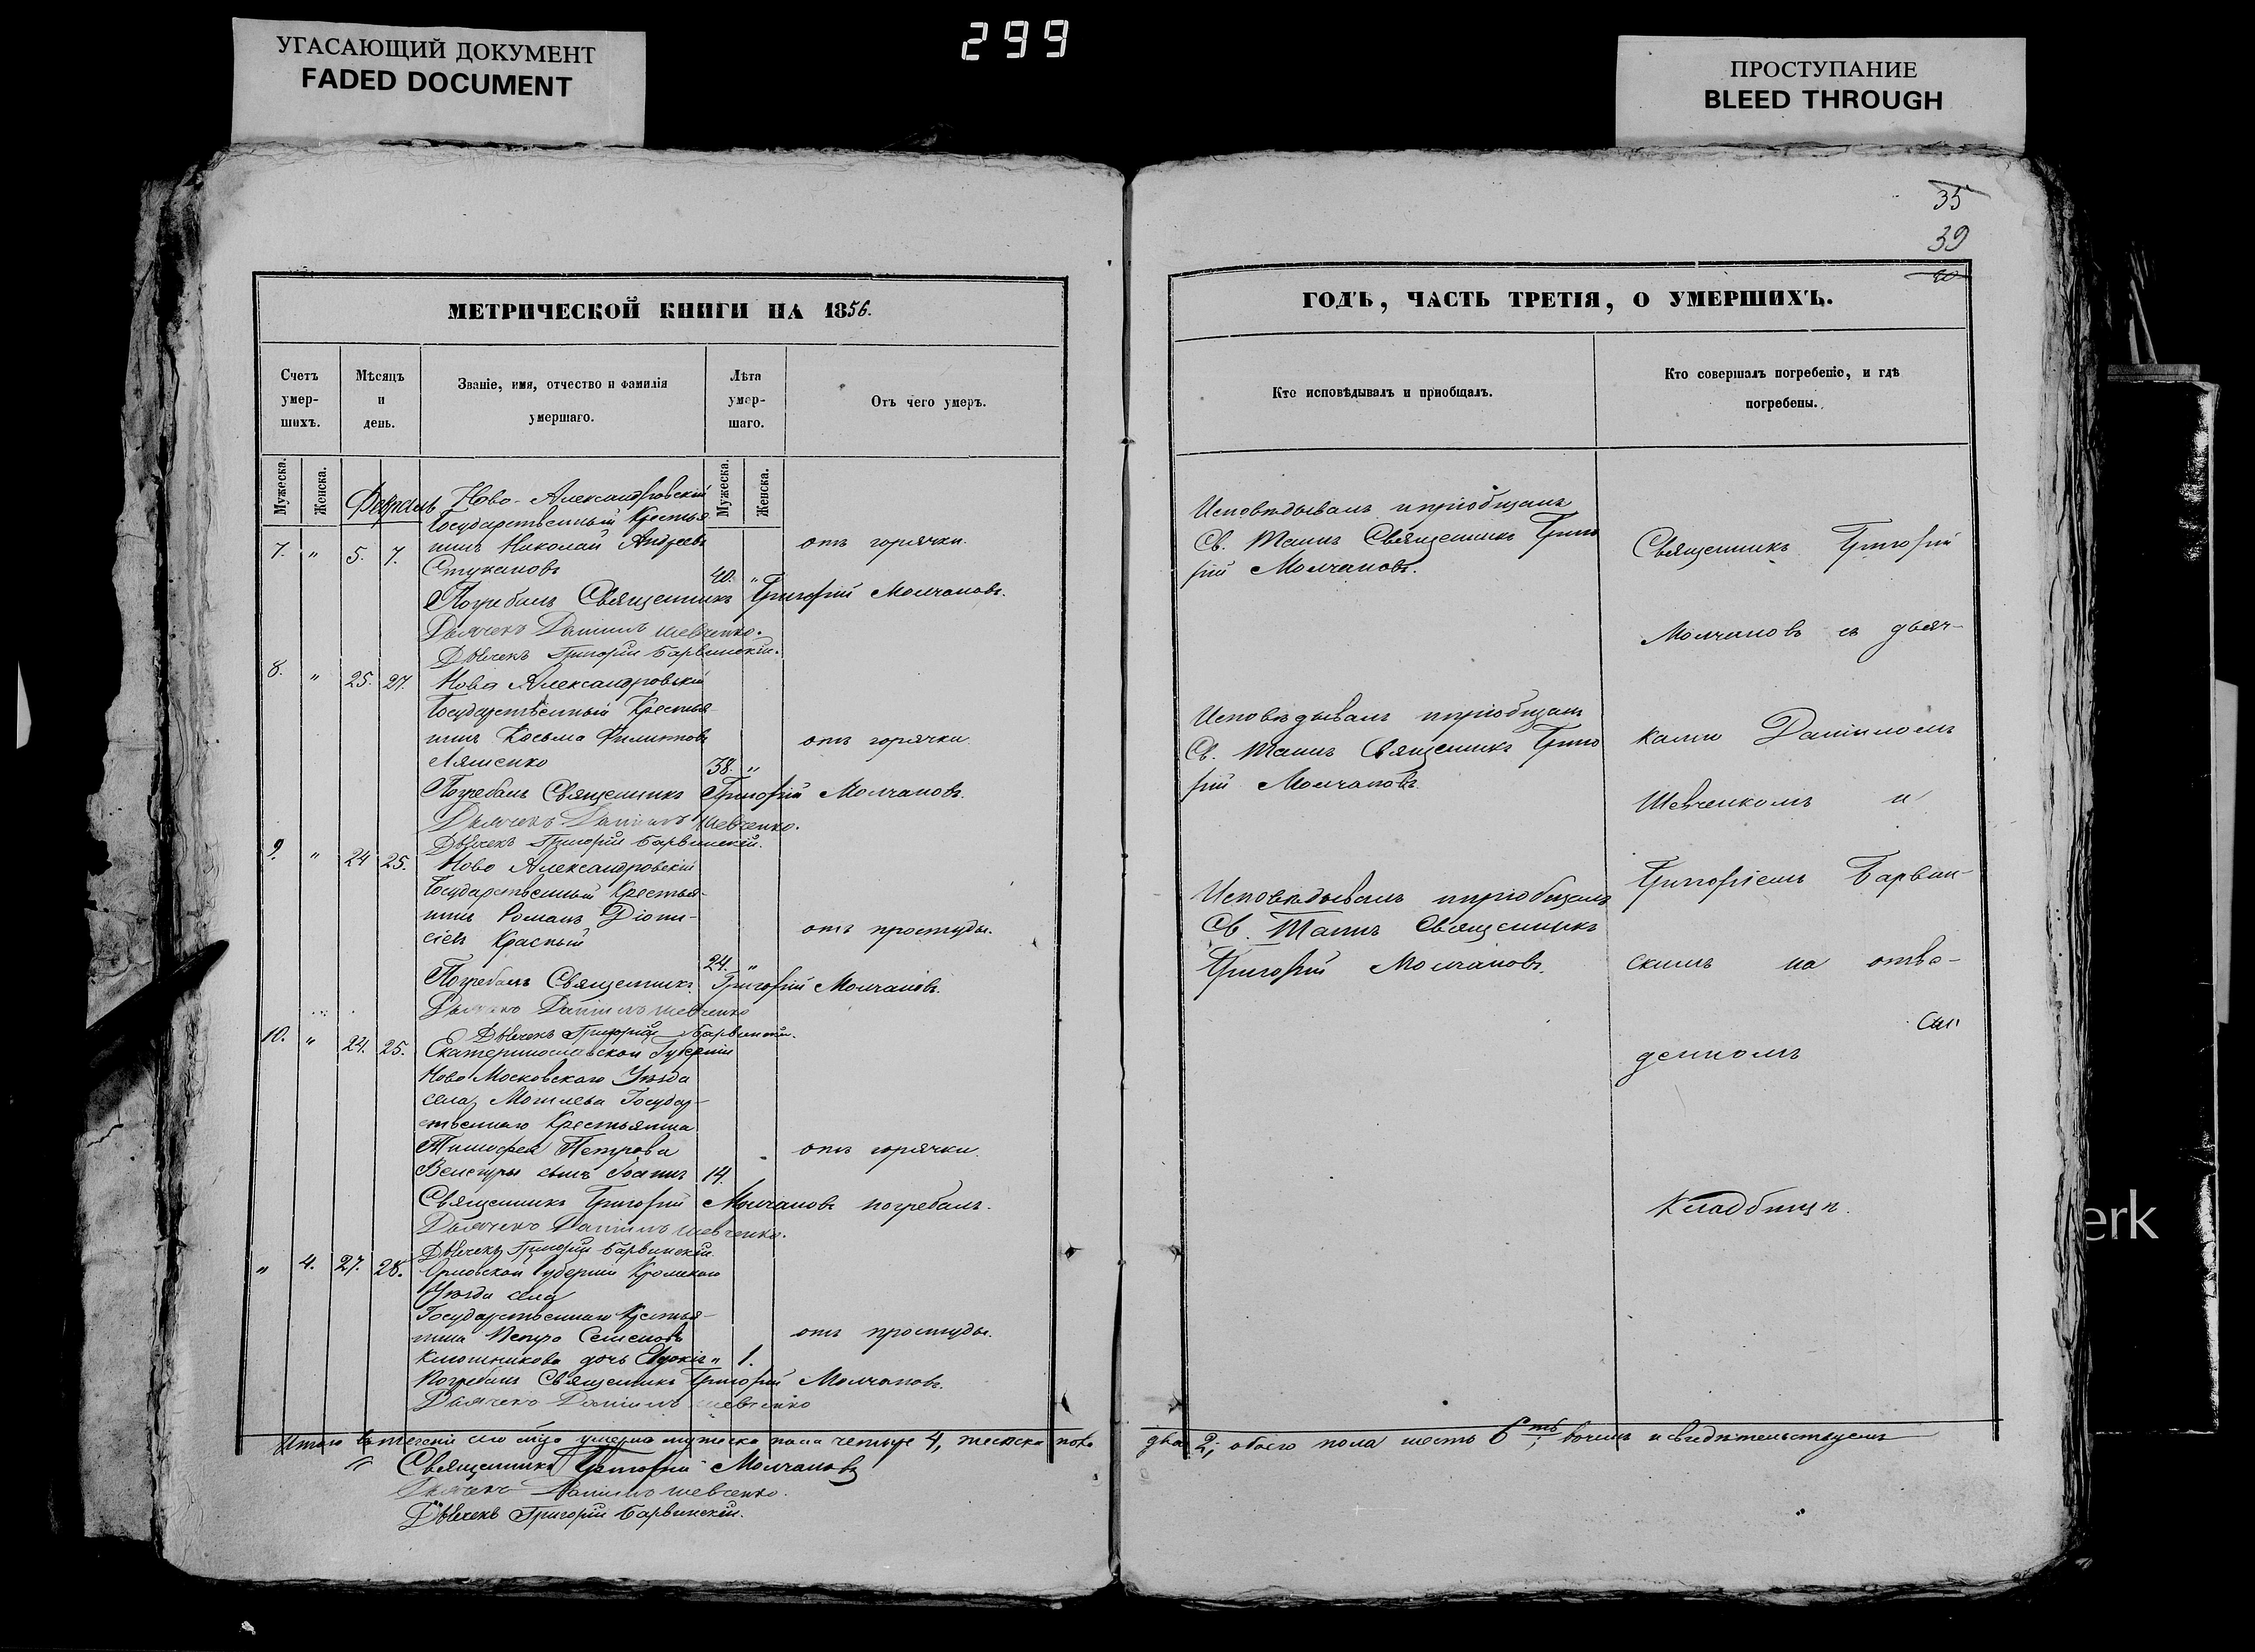 УГАСАЮЩИЙ ДОКУМЕНТ
FADED DOCUMENT
299
ПРОСТУПАНИЕ
BLEED THROUGH
35
39
40
МЕТРИЧЕСКОЙ КНИГИ НА 1856.
Счетъ умер- шихъ.
Мѣсяцъ и день.
Званіе, имя, отчество и фамилія умершаго.
Лѣта умер- шаго.
Отъ чего умеръ.
Мужеска.
Женска.
Мужеска.
Женска.
Февраль Ново-Александровскій
Государственный Крестья-
7. " 5. 7. нинъ Николай Андреевъ отъ горячки.
Стукановъ 40. "
Погребалъ Священникъ Григорій Молчановъ.
Дьячекъ Даніилъ Шевченко.
Дьячекъ Григорій Барвинскій.
8. " 25. 27. Ново Александровскій
Государственный Крестья-
нинъ Косьма Филиповъ отъ горячки.
Ляшенко 38. "
Погребалъ Священникъ Григорій Молчановъ.
Дьячекъ Даніилъ Шевченко.
Дьячекъ Григорій Барвинскій.
9. " 24 25. Ново Александровскій
Государственный Крестья-
нинъ Романъ Діони-
сіевъ Красный отъ простуды.
24. "
Погребалъ Священникъ Григорій Молчановъ.
Дьячекъ Даніилъ Шевченко
Дьячекъ Григорій Барвинскій.
10. " 24. 25. Екатеринославской Губерніи
Ново Московскаго Уѣзда
села Могилева Государ-
ственнаго Крестьянина
Тимофея Петрова отъ горячки.
сынъ Іоаннъ 14.
Священникъ Григорій Молчановъ погребалъ.
Дьячекъ Даніилъ Шевченко.
Дьячекъ Григорій Барвинскій.
" 4. 27. 28. Орловской Губерніи Кромскаго
Уѣзда села
Государственнаго Крестья-
нина Петра Семенова отъ простуды.
Ключникова дочь Евдокія " 1.
Погребалъ Священникъ Григорій Молчановъ.
Дьячекъ Даніилъ Шевченко
Итого умерло мужеска пола четыре 4, женска пола
Священникъ Григорій Молчановъ
Дьячекъ Даніилъ Шевченко.
Дьячекъ Григорій Барвинскій.
ГОДЪ, ЧАСТЬ ТРЕТІЯ, О УМЕРШИХЪ.
Кто исповѣдывалъ и приобщалъ.
Кто совершалъ погребеніе, и гдѣ погребены.
Исповѣдывалъ и пріобщалъ
Св. Таинъ Священникъ Григо
рій Молчановъ.
Исповѣдывалъ и пріобщалъ
Св. Таинъ Священникъ Григо
рій Молчановъ.
Исповѣдывалъ и пріобщалъ
Св. Таинъ Священникъ
Григорій Молчановъ.
Священникъ Григорій
Молчановъ съ дьяч-
ками Даніиломъ
Шевченкомъ и
Григоріемъ Барвин-
скимъ на отве-
денномъ
Кладбищѣ.
два 2; обоего пола шесть 6 свидѣтельствуемъ
erk